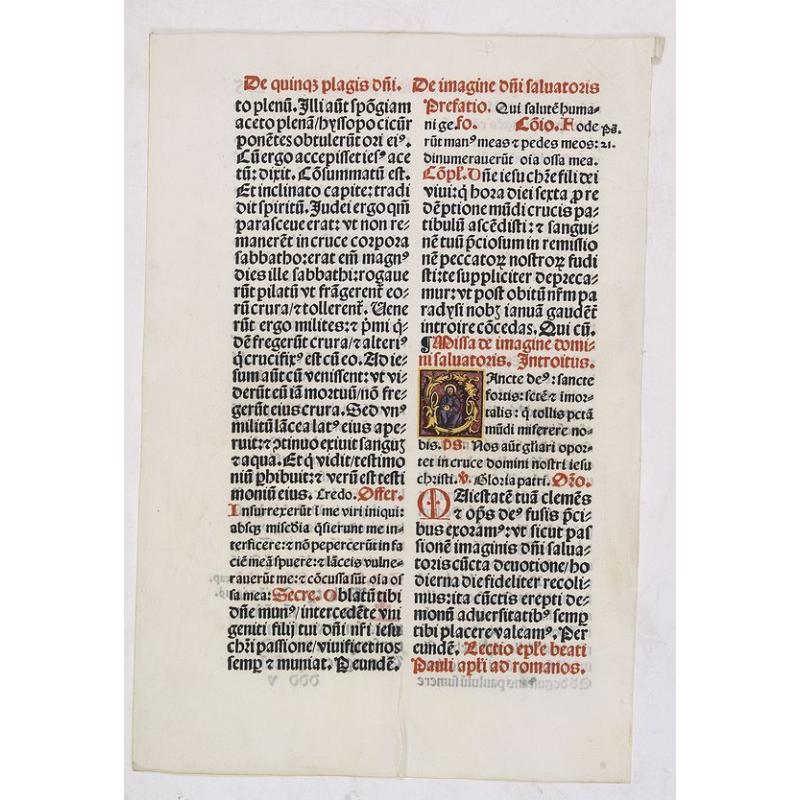 De quinqꝫ plagis dñi. De imagine dñi saluatoris
to plenũ. Illi aũt spõgiam
aceto plenã/hyssopo cicũr
ponẽtes obtulerũt ori ei⁹.
Cũ ergo accepisset ies⁹ ace
tũ: dixit. Cõsummatũ est.
Et inclinato capite: tradi
dit spiritũ. Judei ergo qm̃
parasceue erat: vt non re-
manerẽt in cruce corpora
sabbatho: erat eñi magn⁹
dies ille sabbathi: rogaue
rũt pilatũ vt frãgerent̃ eo-
rũ crura/⁊ tollerent̃. Uene
rũt ergo milites: ⁊ p̃mi q̃-
dẽ fregerũt crura/⁊ alteri⁹
q̃ crucifix⁹ est cũ eo. Ad ie-
sum aũt cũ venissent: vt vi-
derũt eũ iã mortuũ/nõ fre-
gerũt eius crura. Sed vn⁹
militũ lãcea lat⁹ eius ape-
ruit: ⁊ ↄtinuo exiuit sanguꝫ
⁊ aqua. Et q̃ vidit/testimo
niũ phibuit: ⁊ verũ est testi
moniũ eius. Credo. Offer.
Insurrexerũt ĩ me viri iniqui:
absqꝫ misc̃dia q̃sierunt me in-
terficere: ⁊ nõ pepercerũt in fa
ciẽ meã spuere: ⁊ lãceis vulne-
rauerũt me: ⁊ cõcussa sũt oĩa os
sa mea: Secre. Oblatũ tibi
dñe mun⁹/intercedẽte vni
geniti filij tui dñi nr̃i iesu
chr̃i passione/viuificet nos
semꝑ ⁊ muniat. P eundẽ.
Prefatio. Qui salutẽ huma-
ni ge. fo. Cõio. Fode p̃s.
rũt man⁹ meas ⁊ pedes meos: 21.
dinumerauerũt oĩa ossa mea.
Cõpl̃. Dñe iesu chr̃e fili dei
viui: q̃ hora diei sexta ꝓ re
dẽptione mũdi crucis pa-
tibulũ ascẽdisti: ⁊ sangui-
nẽ tuũ p̃ciosum in remissio
nẽ peccatoꝝ nostroꝝ fudi
sti: te suppliciter depreca-
mur: vt post obitũ nr̃m pa
radysi nobꝫ ianuã gaudẽt̃
introire cõcedas. Qui cũ.
¶ Missa de imagine domi-
ni saluatoris. Introitus.
Sancte de⁹: sancte
fortis: sct̃e ⁊ imor-
talis: q̃ tollis pctã
mũdi miserere no-
bis. Ds. Nos aũt gl̃iari opor-
tet in cruce domini nostri iesu
christi. v̾. Gloria patri. Oro.
Maiestatẽ tuã clemẽs
⁊ op̃s de⁹ fusis p̃ci-
bus exoram⁹: vt sicut pas
sionẽ imaginis dñi salua-
toris cũcta deuotione/ho
dierna die fideliter recoli-
mus: ita cũctis erepti de-
monũ aduersitatib⁹ semꝑ
tibi placere valeam⁹. Per
eundẽ. Lectio epl̃e beati
Pauli apl̃i ad romanos.